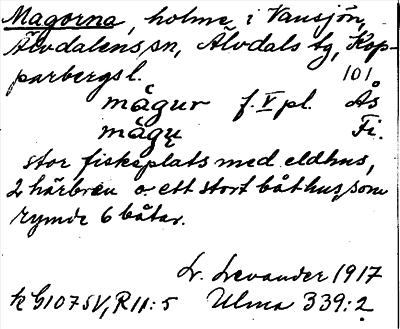 Magorna, holme i Vansjön,
Älvdalens sn, Älvdals tg, Kop-
parbergs l. 101
mågur f. V pl. Ås
mågų Fi.
stor fiskeplats med eldhus,
2 härbren o. ett stort båthus, som
rymde 6 båtar.
L. Levander 1917
k G1075V, R11:5 Ulma 339:2